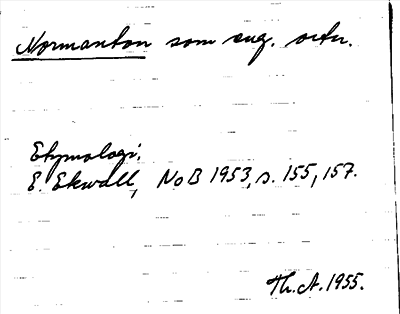 Normanton som eng. ortn.
Etymologi.
E. Ekwall, NoB 1953, s. 155, 157.
Th. A. 1955.